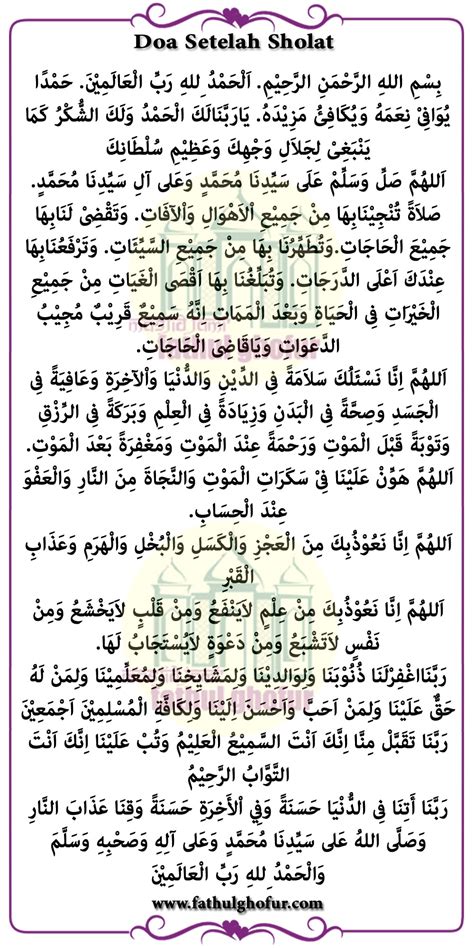 Doa Setelah Sholat
بِسْمِ اللهِ الرَّحْمَنِ الرَّحِيْمِ. اَلْحَمْدُ لِلهِ رَبِّ الْعَالَمِيْنَ. حَمْدًا
يُوَافِيْ نِعَمَهُ وَيُكَافِئُ مَزِيْدَهُ. يَارَبَّنَالَكَ الْحَمْدُ وَلَكَ الشُّكْرُ كَمَا
يَنْبَغِيْ لِجَلاَلِ وَجْهِكَ وَعَظِيْمِ سُلْطَانِكَ
اَللهُمَّ صَلِّ وَسَلِّمْ عَلَى سَيِّدِنَا مُحَمَّدٍ وَعَلى آلِ سَيِّدِنَا مُحَمَّدٍ.
صَلاَةً تُنْجِيْنَابِهَا مِنْ جَمِيْعِ الْأَهْوَالِ وَاْلآفَاتِ. وَتَقْضِيْ لَنَابِهَا
جَمِيْعَ الْحَاجَاتِ.وَتُطَهِّرُنَا بِهَا مِنْ جَمِيْعِ السَّيِّئَاتِ. وَتَرْفَعُنَابِهَا
عِنْدَكَ اَعْلَى الدَّرَجَاتِ. وَتُبَلِّغُنَا بِهَا اَقْصَى الْغَيَاتِ مِنْ جَمِيْعِ
الْخَيْرَاتِ فِى الْحَيَاةِ وَبَعْدَ الْمَمَاتِ اِنَّهُ سَمِيْعٌ قَرِيْبٌ مُجِيْبُ
الدَّعَوَاتِ وَيَاقَاضِىَ الْحَاجَاتِ.
اَللهُمَّ اِنَّا نَسْئَلُكَ سَلاَمَةً فِى الدِّيْنِ وَالدُّنْيَا وَاْلآخِرَةِ وَعَافِيَةً فِى
الْجَسَدِ وَصِحَّةً فِى الْبَدَنِ وَزِيَادَةً فِى الْعِلْمِ وَبَرَكَةً فِى الرِّزْقِ
وَتَوْبَةً قَبْلَ الْمَوْتِ وَرَحْمَةً عِنْدَ الْمَوْتِ وَمَغْفِرَةً بَعْدَ الْمَوْتِ.
اَللهُمَّ هَوِّنْ عَلَيْنَا فِيْ سَكَرَاتِ الْمَوْتِ وَالنَّجَاةَ مِنَ النَّارِ وَالْعَفْوَ
عِنْدَ الْحِسَابِ.
اَللهُمَّ اِنَّا نَعُوْذُبِكَ مِنَ الْعَجْزِ وَالْكَسَلِ وَالْبُخْلِ وَالْهَرَمِ وَعَذَابِ
الْقَبْرِ
اَللهُمَّ اِنَّا نَعُوْذُبِكَ مِنْ عِلْمٍ لاَيَنْفَعُ وَمِنْ قَلْبٍ لاَيَخْشَعُ وَمِنْ
نَفْسٍ لاَتَشْبَعُ وَمِنْ دَعْوَةٍ لاَيُسْتَجَابُ لَهَا.
رَبَّنَااغْفِرْلَنَا ذُنُوْبَنَا وَلِوَالِدِيْنَا وَلِمَشَايِخِنَا وَلِمُعَلِّمِيْنَا وَلِمَنْ لَهُ
حَقٌّ عَلَيْنَا وَلِمَنْ اَحَبَّ وَاَحْسَنَ اِلَيْنَا وَلِكَافَّةِ الْمُسْلِمِيْنَ اَجْمَعِيْنَ
رَبَّنَا تَقَبَّلْ مِنَّا اِنَّكَ اَنْتَ السَّمِيْعُ الْعَلِيْمُ وَتُبْ عَلَيْنَا اِنَّكَ اَنْتَ
التَّوَّابُ الرَّحِيْمُ
رَبَّنَا أَتِنَا فِي الدُّنْيَا حَسَنَةً وَفِي اْلأَخِرَةِ حَسَنَةً وَقِنَا عَذَابَ النَّارِ
وَصَلَّى اللهُ عَلَى سَيِّدِنَا مُحَمَّدٍ وَعَلَى آلِهِ وَصَحْبِهِ وَسَلَّمَ
وَالْحَمْدُ لِلهِ رَبِّ الْعَالَمِيْنَ
www.fathulghofur.com
masjid jami'
fathul ghofur
fathul ghofur